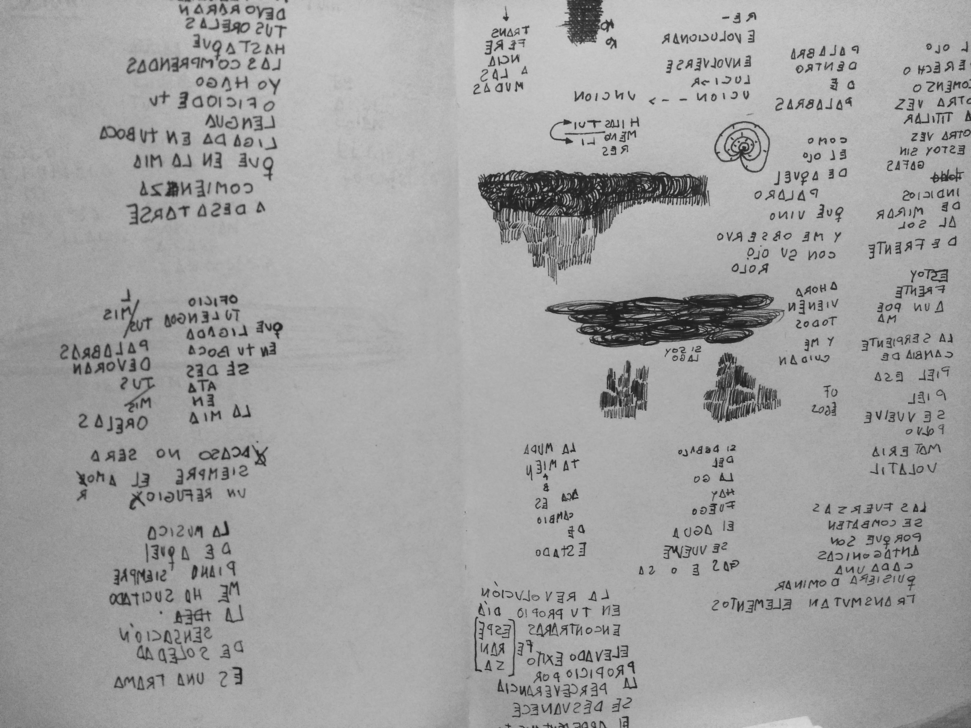 L OJO
DERECHO
COMENZO
OTRA VEZ
A TITILAR
OTRA VES
ESTOY SIN
GAFAS
INDICIOS
DE MIRAR
AL SOL
DE FRENTE
ESTOY
FRENTE
A UN POE
MA
LA SERPIENTE
CAMBIA DE
PIEL ESA
PIEL
SE VUELVE
POLVO
MATERIA
VOLATIL
LAS FUERSAS
SE COMBATEN
PORQUE SON
ANTAGONICAS
CADA UNA
QUISIERA DOMINAR
TRANSMUTAN ELEMENTOS
PALABRA
DENTRO
DE
PALABRAS
COMO
EL OJO
DE AQUEL
PAJARO
QUE VINO
Y ME OBSERVO
CON SU OJO
ROJO
AHORA
VIENEN
TODOS
Y ME
CUIDAN
RE-
EVOLUCIONAR
ENVOLVERSE
LUCIR
UCION --> UNCION
TRANS
FERE
NCIA
A LAS
MUDAS
HILAS TUI
MENO LI
RES
SI SOY
LAGO
SI DEBAJO
DEL
LAGO
HAY
FUEGO
EL AGUA
SE VUELVE
GAS E O SA
LA MUDA
TAMIEN
B
ACA ES
CAMBIO
DE
ESTADO
LA REVOLUCIÓN
EN TU PROPIO DÍA
ENCONTRARAS
ESPE
RAN
SA
FE
ELEVADO EXITO
PROPICIO POR
LA PERCEVERANCIA
SE DESVANECE
EL
DEVORARAN
TUS OREJAS
HASTA QUE
LAS COMPRENDAS
YO HAGO
OFICIO DE TU
LENGUA
LIGADA EN TU BOCA
QUE EN LA MIA
COMIENZA
A DESATARSE
OFICIO
TU LENGUA
QUE LIGADA
EN TU BOCA
SE DES
ATA
EN
LA MIA
L
TUS/MIS
PALABRAS
DEVORAN
TUS
MIS
OREJAS
ACASO NO SERA
SIEMPRE EL AMOR
UN REFUGIO
R
LA MUSICA
DE AQUEL
PIANO SIEMPRE
ME HA SUCITADO
LA IDEA
SENSACIÓN
DE SOLEDAD
ES UNA TRAMA